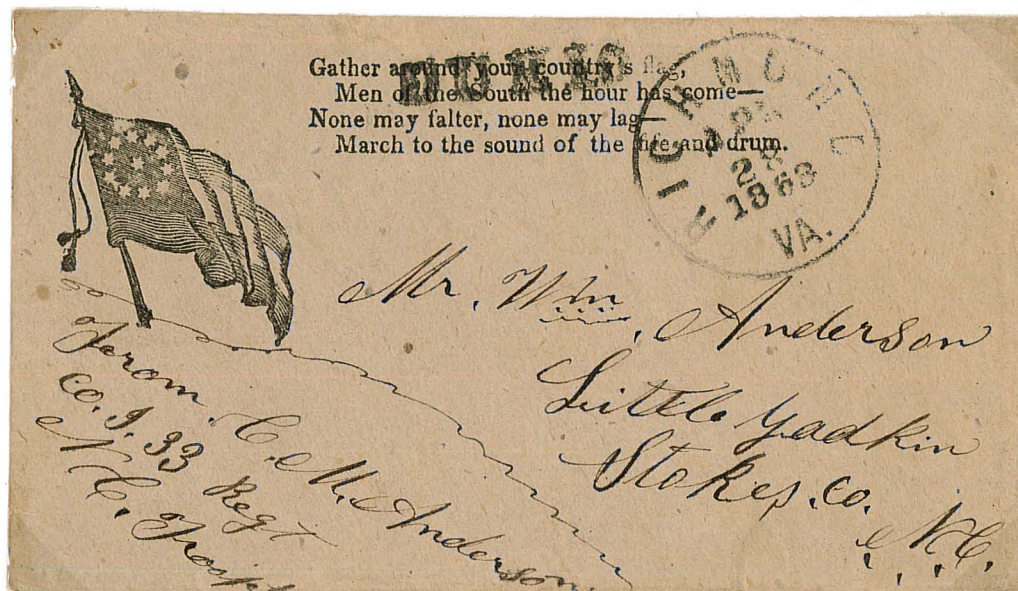 Gather around your country's flag,
Men of the South the hour has come—
None may falter, none may lag—
March to the sound of the fife and drum.
RICHMOND
APR
28
1863
VA.
Mr. Wm. Anderson
Little Yadkin
Stokes. co.
N.C.
From. C. M. Anderson.
Co. I. 33 Regt
N.C. Troops